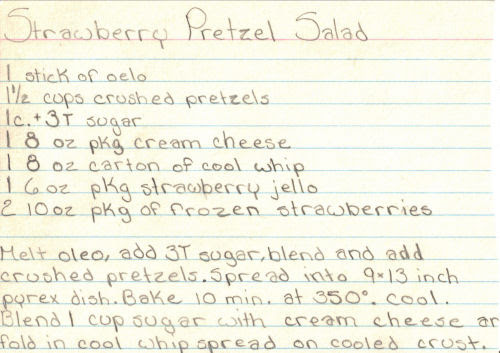 Strawberry Pretzel Salad
1 stick of oelo
1 1/2 cups crushed pretzels
1c.+3T sugar
1 8 oz pkg cream cheese
1 8 oz carton of cool whip
1 6 oz pkg strawberry jello
2 10 oz pkg of frozen strawberries
Melt oleo, add 3T sugar, blend and add
crushed pretzels. Spread into 9x13 inch
pyrex dish. Bake 10 min. at 350°. cool.
Blend 1 cup sugar with cream cheese an
fold in cool whip spread on cooled crust.